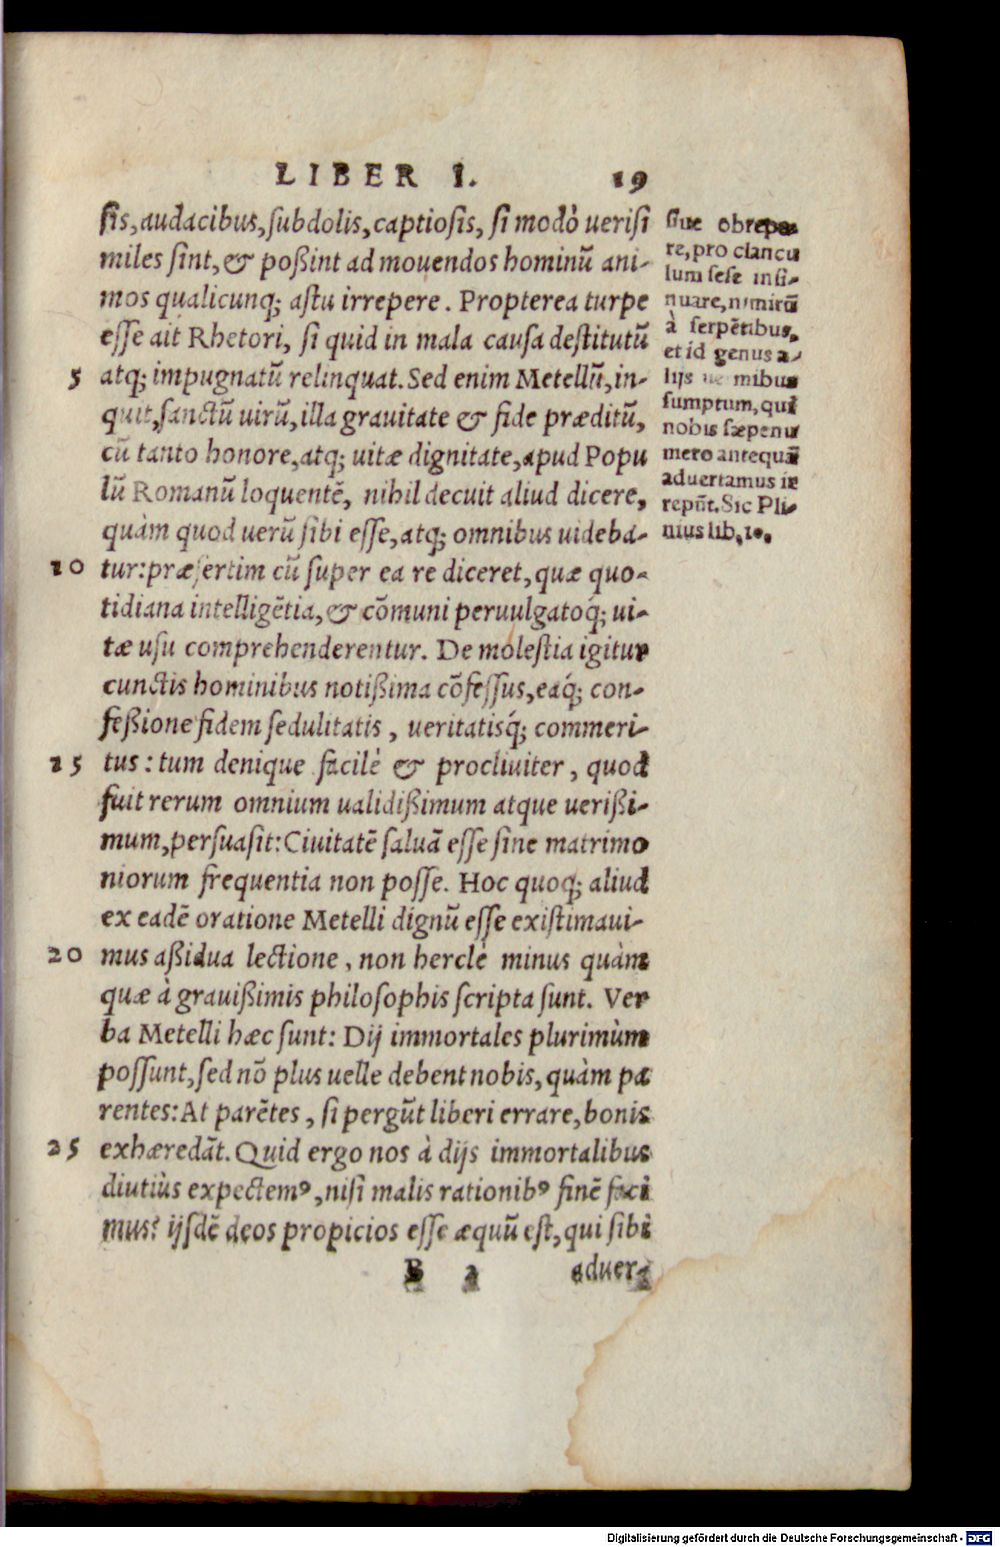 LIBER I. 19
sis, audacibus, subdolis, captiosis, si modò uerisi
miles sint, & poßint ad mouendos hominũ ani-
mos qualicunq; astu irrepere. Propterea turpe
esse ait Rhetori, si quid in mala causa destitutũ
5 atq; impugnatũ relinquat. Sed enim Metellũ, in-
quit, sanctũ uirũ, illa grauitate & fide præditũ,
cũ tanto honore, atq; uitæ dignitate, apud Popu
lũ Romanũ loquentẽ, nihil decuit aliud dicere,
quàm quod uerũ sibi esse, atq; omnibus uideba-
10 tur: præsertim cũ super ea re diceret, quæ quo-
tidiana intelligẽtia, & cõmuni peruulgatoq́; ui-
tæ usu comprehenderentur. De molestia igitur
cunctis hominibus notißima cõfessus, eaq́; con-
feßione fidem sedulitatis, ueritatisq́; commeri-
15 tus: tum denique facilè & procliuiter, quod
fuit rerum omnium ualidißimum atque uerißi-
mum, persuasit: Ciuitatẽ saluã esse sine matrimo
niorum frequentia non posse. Hoc quoq; aliud
ex eadẽ oratione Metelli dignũ esse existimaui-
20 mus aßidua lectione, non herclè minus quàm
quæ à grauißimis philosophis scripta sunt. Ver
ba Metelli hæc sunt: Dij immortales plurimùm
possunt, sed nõ plus uelle debent nobis, quàm pa
rentes: At parẽtes, si pergũt liberi errare, bonis
25 exhæredãt. Quid ergo nos à dijs immortalibus
diutiùs expectemꝰ, nisi malis rationibꝰ finẽ faci
mus? ijsdẽ deos propicios esse æquũ est, qui sibi
B 2 aduer-
siue obrepe
re, pro clancu
lum sese insi-
nuare, nimirũ
à serpẽtibus,
et id genus a-
lijs uermibus
sumptum, qui
nobis sæpenu
mero antequã
aduertamus ir
repũt. Sic Pli-
nius lib. 10.
Digitalisierung gefördert durch die Deutsche Forschungsgemeinschaft - DFG